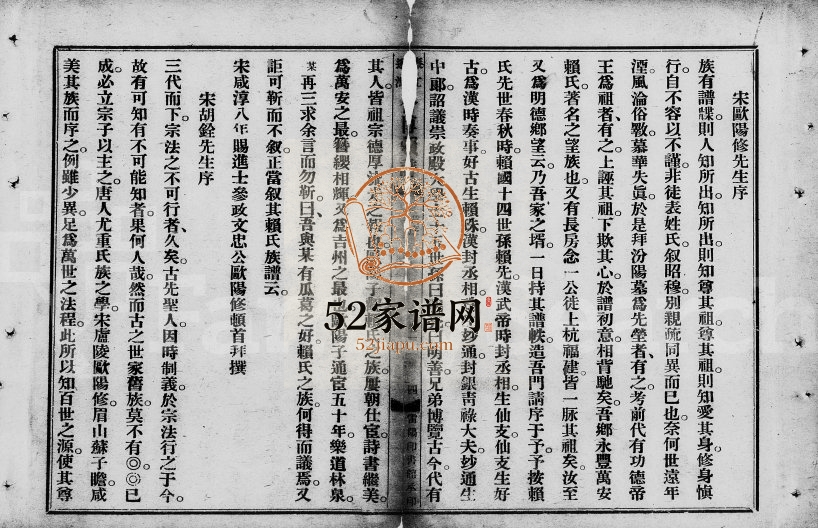 宋歐陽修先生序
族有譜諜則人知所出知所出則知尊其祖尊其祖則知愛其身修身慎
行自不容以不謹非徒表姓氏叙昭穆別親疏同異而已也奈何世遠年
湮風淪俗斁慕華失眞於是拜汾陽墓爲先塋者有之考前代有功德帝
王爲祖者有之上誣其祖下欺其心於譜初意相背馳矣吾鄉永豐萬安
賴氏著名之望族也又有長房念一公徙上杭福建皆一脉其祖矣汝至
又爲明德鄉望云乃吾家之壻一日持其譜帙造吾門請序于予予按賴
氏先世春秋時賴國十四世孫賴先漢武帝時封丞相生仙支仙支生好
古爲漢時奏事好古生賴 漢封丞相 妙通封銀靑祿大夫妙通生
中郞詔議崇政殿大學 世 曰 明善兄弟博覽古今代有
其人皆祖宗德厚流 之 也 子 之族屢朝仕宦詩書繼美
爲萬安之最簪纓相輝又爲吉州之最 陽子通宦五十年樂道林泉
某再三求余言而勿靳曰吾與某有瓜葛之好賴氏之族何得而議焉又
詎可靳而不叙正當叙其賴氏族譜云
宋咸淳八年賜進士參政文忠公歐陽修頓首拜撰
宋胡銓先生序
三代而下宗法之不可行者久矣古先聖人因時制義於宗法行之于今
故有可知有不可能知者果何人哉然而古之世家舊族莫不有◎◎已
成必立宗子以主之唐人尤重氏族之學宋盧陵歐陽修眉山蘇子瞻咸
美其族而序之例雖少異足爲萬世之法程此所以知百世之源使其尊
52家谱网
52jiapu.com